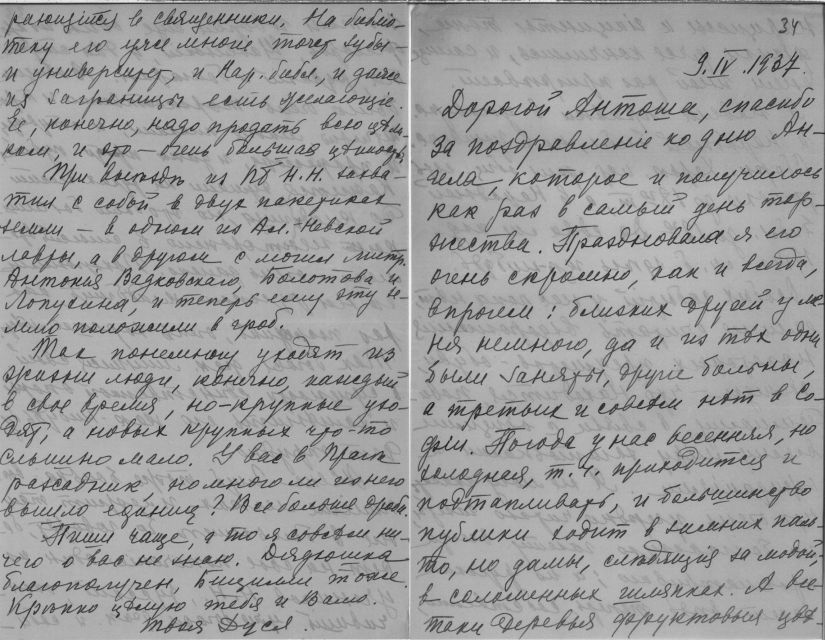 рающiйся в священники. На библiо-
теку его уже многiе точат зубы –
и университет, и Нар. библ., и даже
из заграницы есть желающiе.
Ее, конечно, надо продать всю цѣли-
ком, и это – очень большая цѣнность.
При выѣздѣ из Пб Н.Н. захва-
тил с собой в двух пакетиках
земли – в одном из Ал.-Невской
лавры, а в другом с могил митр.
Антонiя Вадковскаго, Болотова и
Лопухина, и теперь ему эту зе-
млю положили в гроб.
Так понемногу уходят из
жизни люди, конечно, каждый
в свое время, но – крупные ухо-
дят, а новых крупных что-то
слышно мало. У вас в Праге
разсадник, но много ли из него
вышло единиц? Все больше дроби.
Пиши чаще, а то я совсѣм ни-
чего о вас не знаю. Дядюшка
благополучен, Бицилли тоже.
Крѣпко цѣлую тебя и Валю.
Твоя Дуся.
34
9.IV.1937.
Дорогой Антоша, спасибо
за поздравленiе ко дню Ан-
гела, которое и получилось
как раз в самый день тор-
жества. Праздновала я его
очень скромно, как и всегда,
впрочем: близких друзей у ме-
ня немного, да и из тѣх одни
были заняты, другiе больны,
а третьих и совсѣм нѣт в Со-
фiи. Погода у нас весенняя, но
холодная, т.ч. приходится и
подтапливать, и большинство
публики ходит в зимних паль-
то, но дамы, слѣдящiя за модой –
в соломенных шляпках. А все-
таки деревья фруктовыя цвѣ-